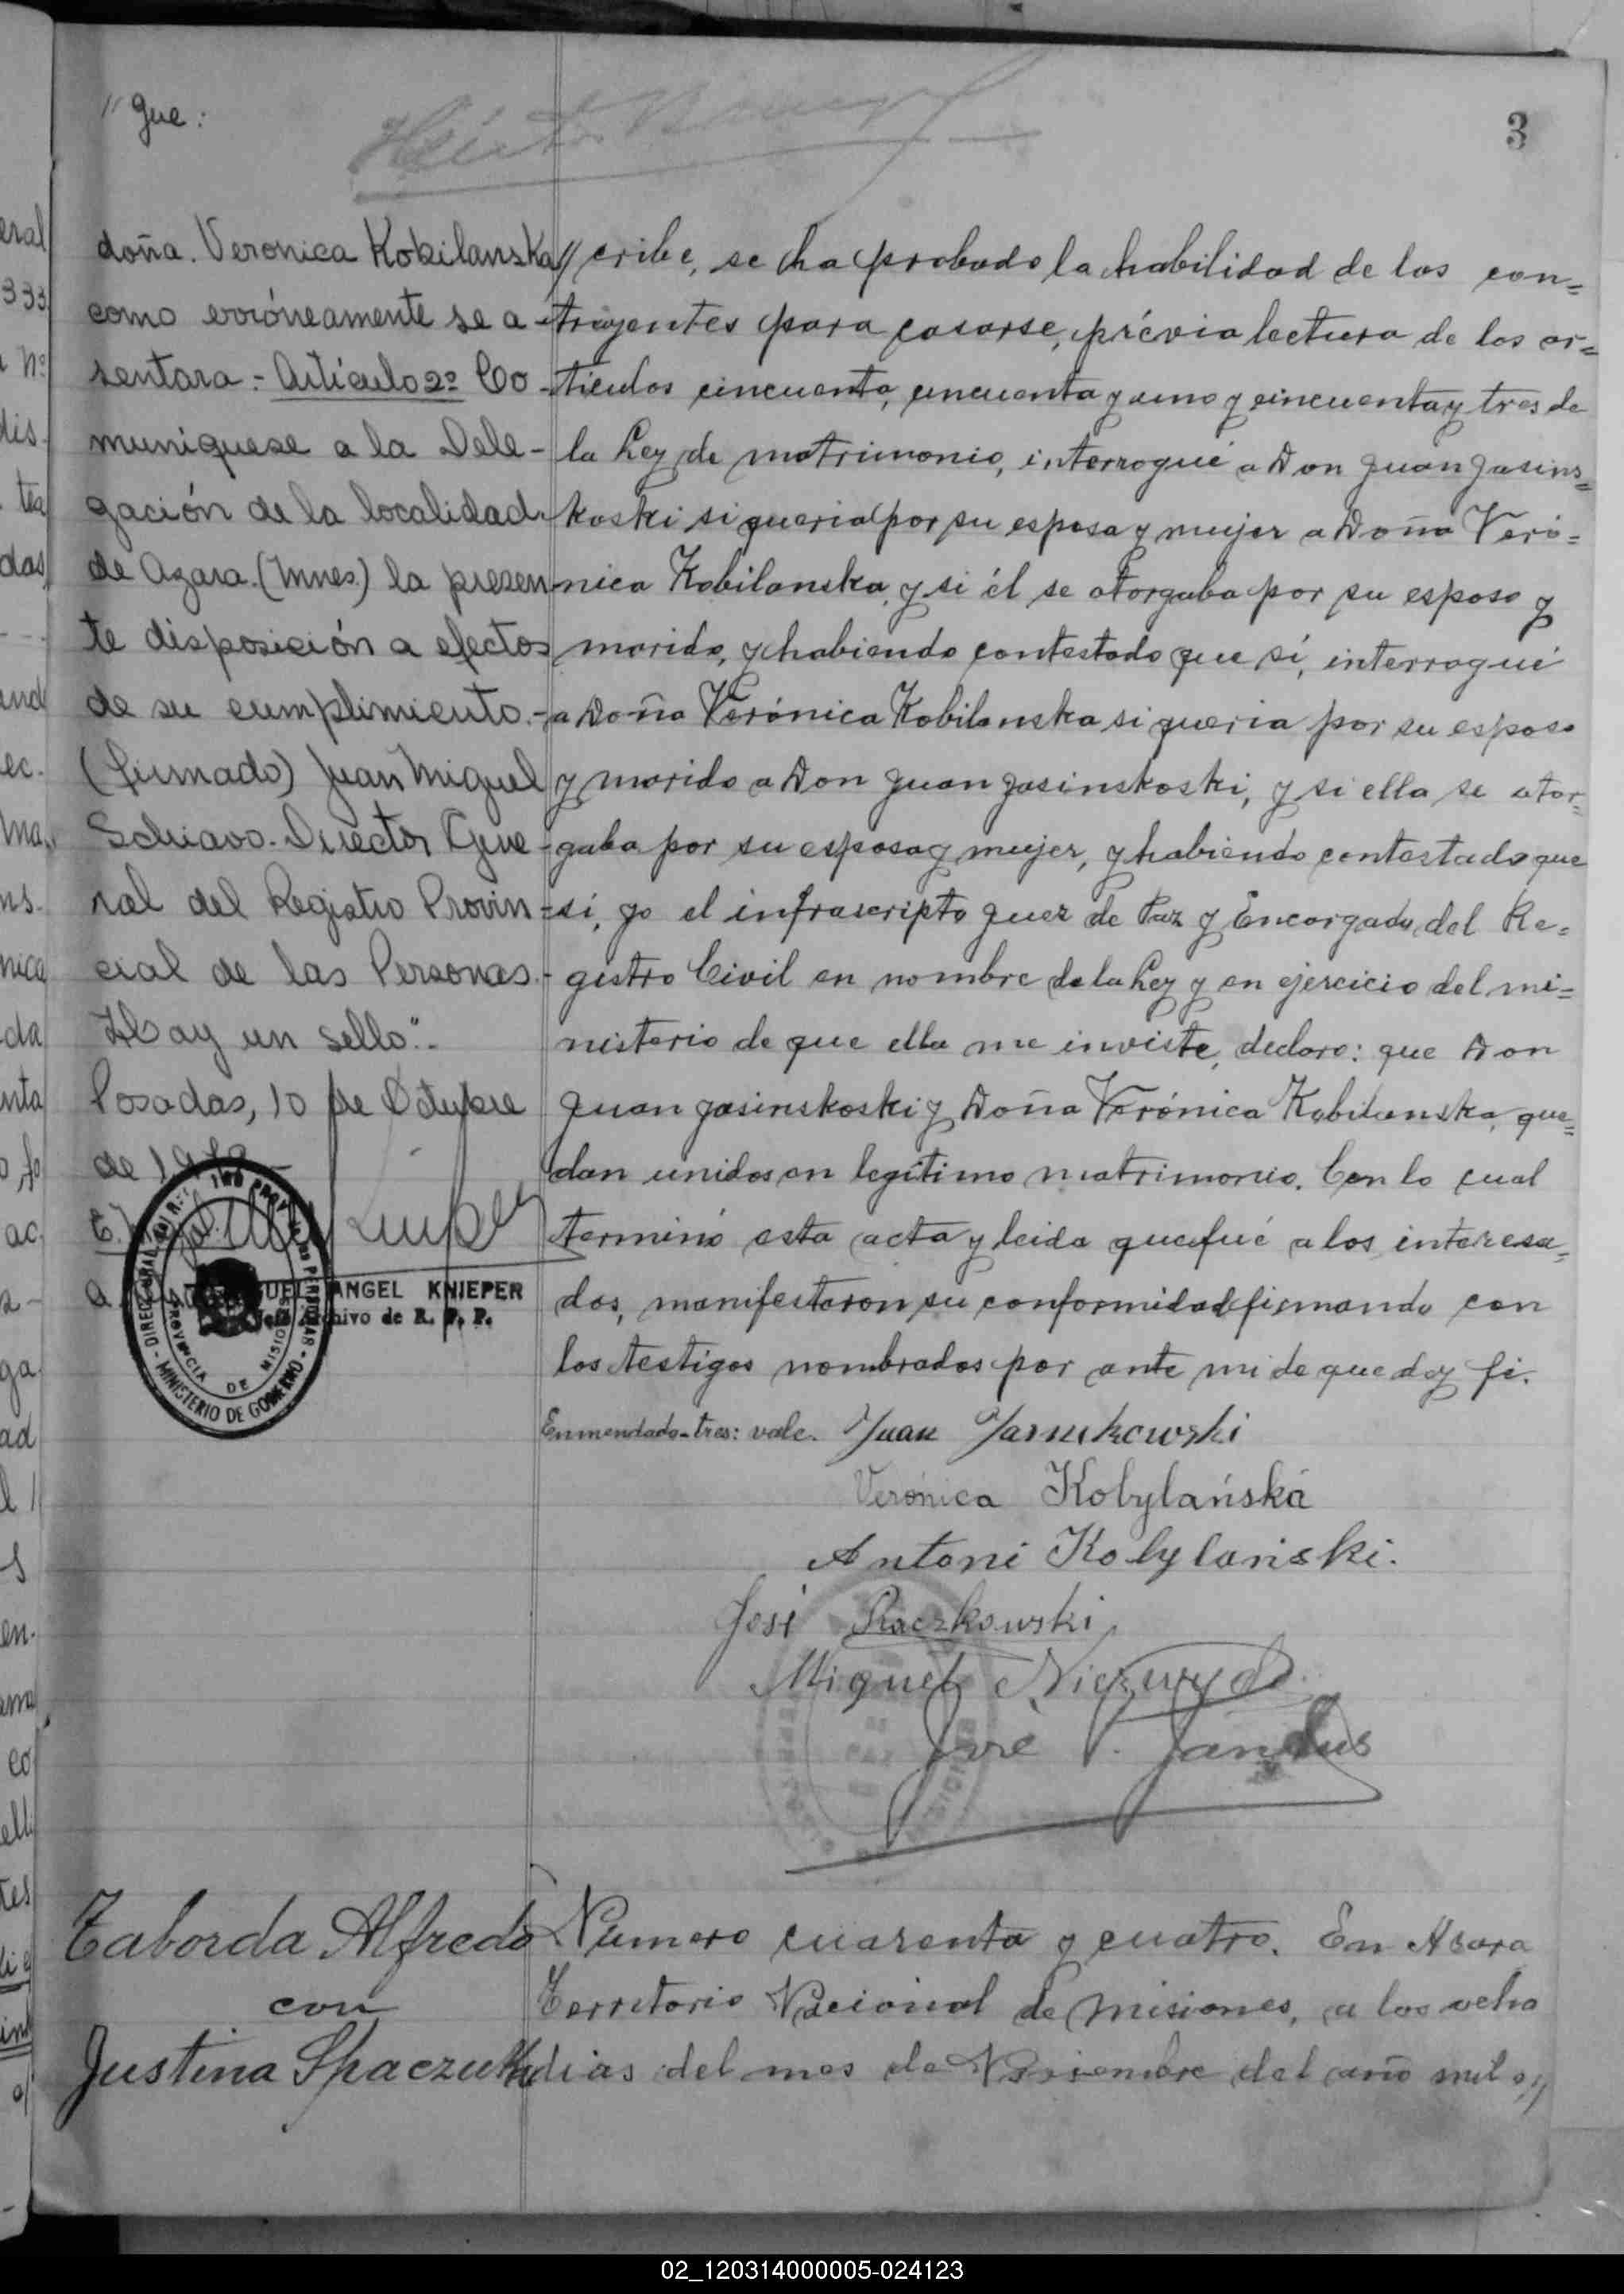 " que:
3
doña. Veronica Kobilanska
como erróneamente se a-
sentara.- Artículo 2º Co-
muníquese a la Dele-
gación de la localidad
de Azara. (Mnes.) la presen-
te disposición a efectos
de su cumplimiento.-
(firmado) Juan Miguel
Schiavo. Director Gene-
ral del Registro Provin-
cial de las Personas.-
Hay un sello".-
Posadas, 10 de Octubre
de
ANGEL KNIEPER
Archivo de R. P. P.
MINISTERIO DE GOBIERNO - DIREC. GRAL. DEL
PROVINCIA DE MISIONES
// cribe, se ha probado la habilidad de los con=
trayentes para casarse, prévia lectura de los ar=
tículos cincuenta, cincuenta y uno y cincuenta y tres de
la Ley de matrimonio, interrogué a Don Juan Jasins=
koski si queria por su esposa y mujer a Doña Veró=
nica Kobilanska, y si él se otorgaba por su esposo y
marido, y habiendo contestado que sí, interrogué
a Doña Verónica Kobilanska si queria por su esposo
y marido a Don Juan Jasinskoski, y si ella se otor=
gaba por su esposa y mujer, y habiendo contestado que
sí, yo el infrascripto Juez de Paz y Encargado del Re=
gistro Civil en nombre de la Ley y en ejercicio del mi=
nisterio de que ella me inviste, declaro: que Don
Juan Jasinskoski y Doña Verónica Kobilanska, que=
dan unidos en legítimo matrimonio. Con lo cual
terminó esta acta y leida que fué a los interesa=
dos, manifestaron su conformidad firmando con
los testigos nombrados por ante mi de que doy fé.
Enmendado-tres: vale. Juan
Verónica Kobylańská
Antoni Kobylański.
José Raczkowski
Miguel
José P.
Taborda Alfredo
con
Justina
Numero cuarenta y cuatro. En Azara
Territorio Nacional de Misiones, a los ocho
dias del mes de Noviembre del año mil
02_120314000005-024123